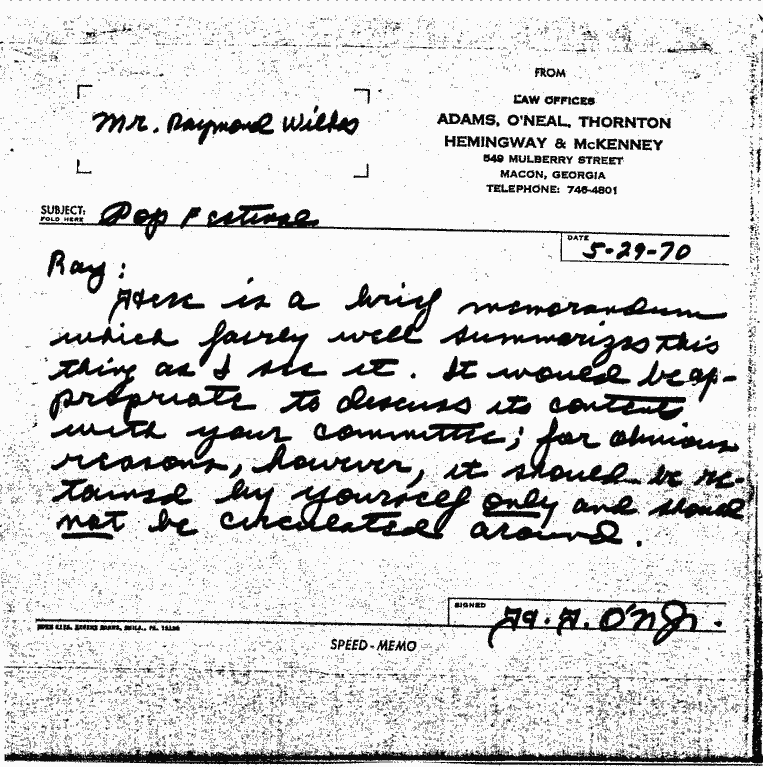 FROM
LAW OFFICES
Mr. Raymond Wilkes
ADAMS, O'NEAL, THORNTON
HEMINGWAY & McKENNEY
549 MULBERRY STREET
MACON, GEORGIA
TELEPHONE: 746-4801
SUBJECT: Pop Festival
FOLD HERE
DATE 5-29-70
Ray:
Here is a brief memorandum
which fairly well summarizes this
thing as I see it. It would be ap-
propriate to discuss its contents
with your committee; for obvious
reasons, however, it should be re-
tained by yourself only and should
not be circulated around.
SIGNED H. F. O'N Jr.
SPEED-MEMO